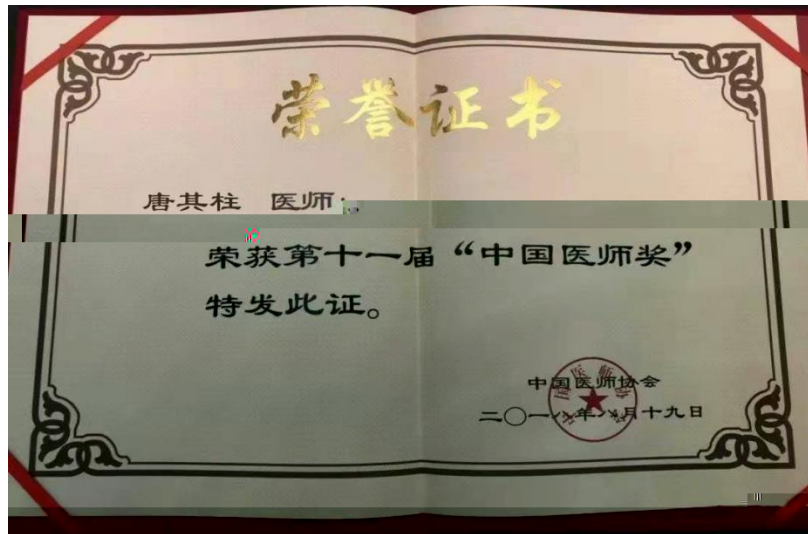 荣誉证书
唐其柱 医师:
荣获第十一届“中国医师奖”
特发此证。
中国医师协会
二〇一八年八月十九日